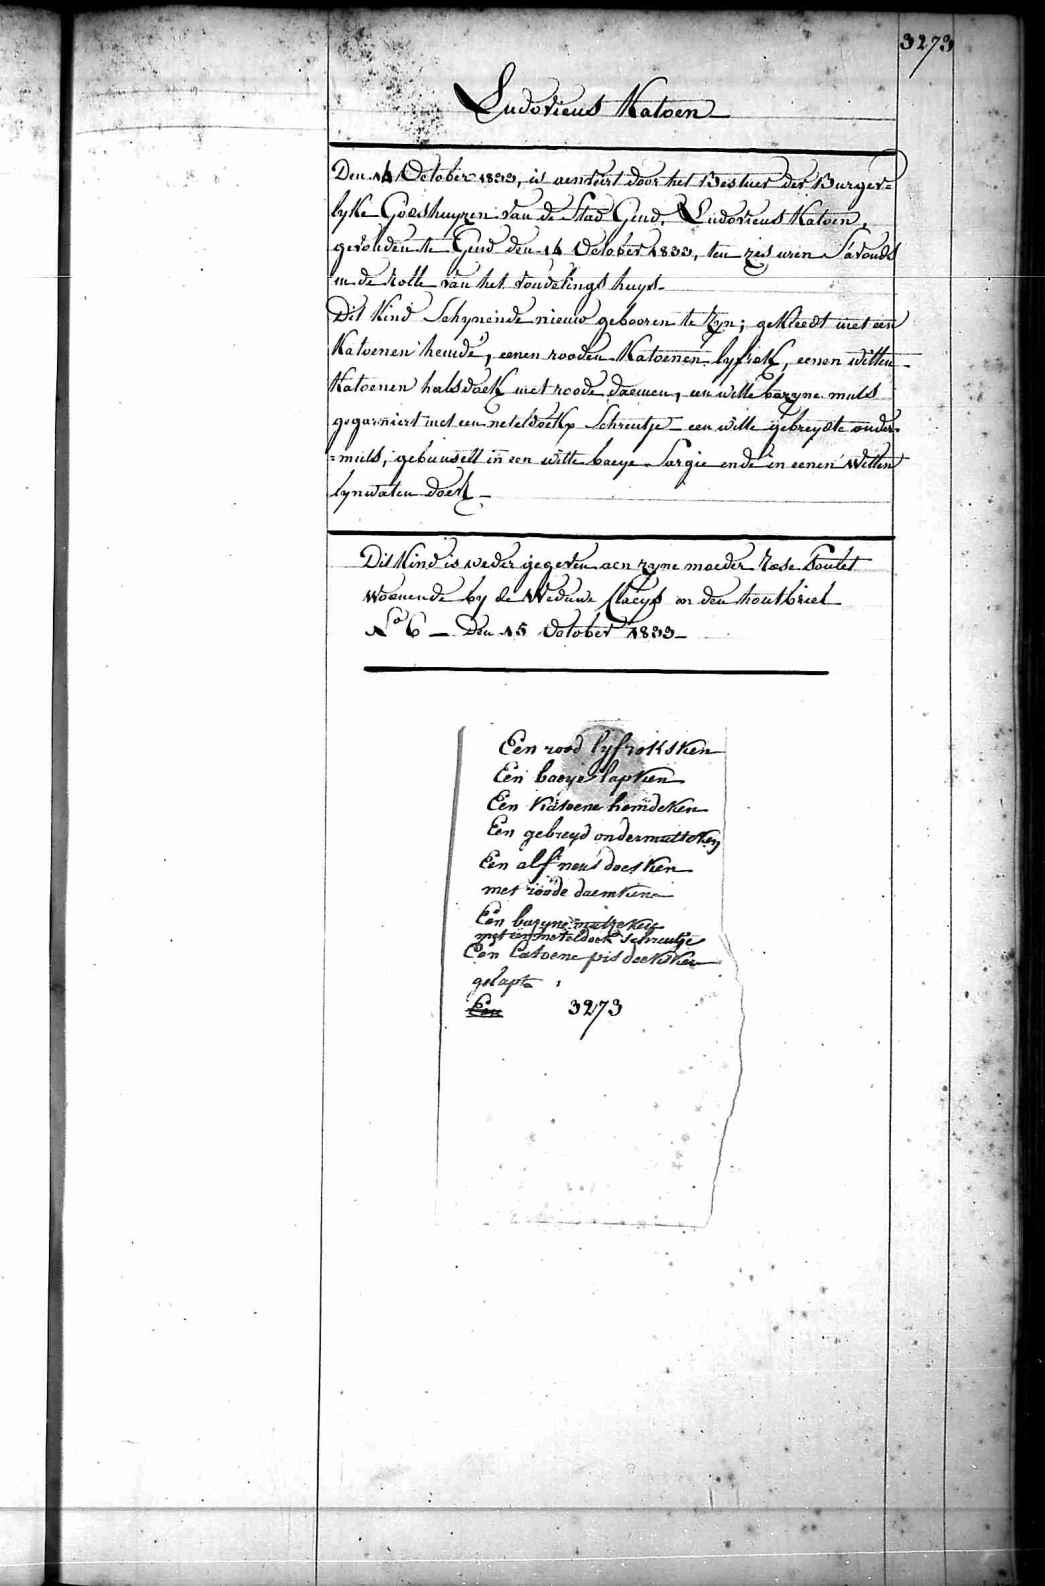 3273
Ludovicus Katoen
Den 14 October 1833, is aenveirt door het Bestuer der Burger=
lyke Godshuyzen van de Stad Gend, Ludovicus Katoen,
gevonden te Gend den 14 October 1833, ten zes uren S'avonds
in de rolle van het vondelings huys.
Dit Kind Schynende nieuw gebooren te Zyn; gekleedt met een
Katoenen hemde, eenen rooden Katoenen lyfrok, eenen witten
Katoenen halsdoek met roode daemen, een witte bazyne muts
gegarniert met een neteldoekx Schreutje een witte gebreyde onder=
=muts, gebunselt in een witte baeye Sargie ende in eenen Witten
lynwaten doek
Dit Kind is weder gegeven aen zyne moeder Rose
Woonende by de Weduwe Claeys op den houtbriel
No 6 — Den 15 October 1833
Een rood lyfroksken
Een baeye lapken
Een katoene hemdeken
Een gebreyd ondermutseken
Een alf neus doesken
met roode daemkens
Een bazyne mutseken
met een neteldoek schreutje
Een Catoene pis doeksken
gelapt
Een 3273